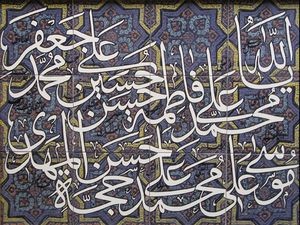 الله محمد علي فاطمة حسن حسين علي محمد جعفر
موسى علي محمد علي حسن حجة المهدي